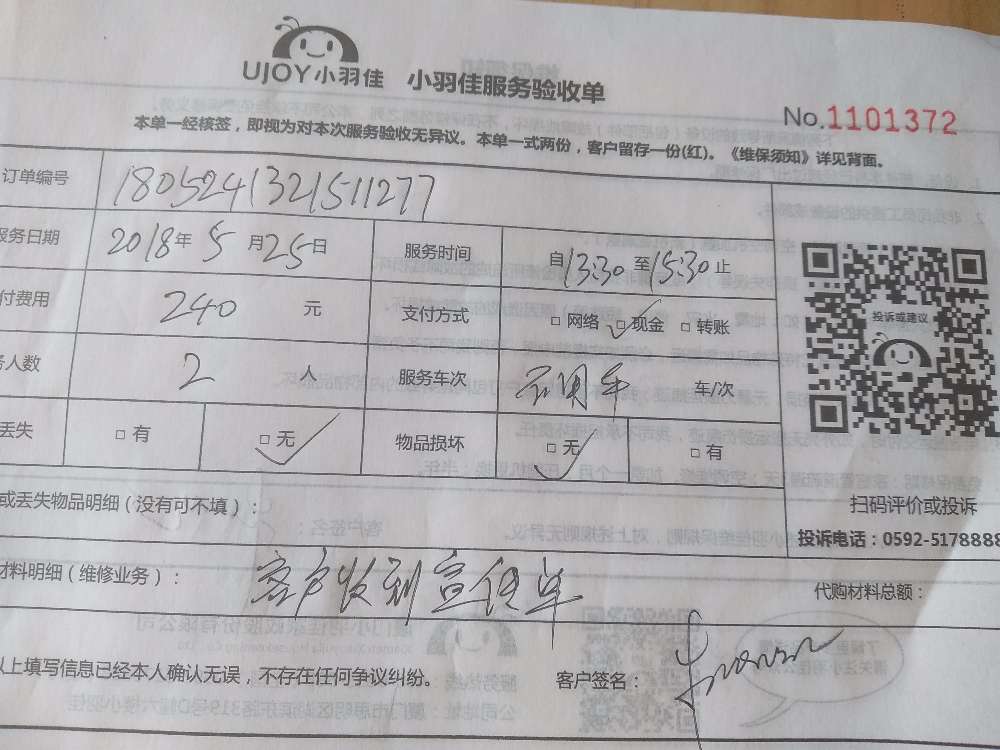 UJOY小羽佳 小羽佳服务验收单
No.1101372
本单一经核签，即视为对本次服务验收无异议。本单一式两份，客户留存一份(红)。《维保须知》详见背面。
订单编号 180524132151 1277
服务日期 2018年 5 月 25 日 服务时间 自 13:30 至 15:30 止
付费用 240 元 支付方式 □ 网络 □ 现金 □ 转账
务人数 2 人 服务车次 车/次
丢失 □ 有 □ 无 物品损坏 □ 无 □ 有
投诉或建议
扫码评价或投诉
投诉电话：0592-5178888
或丢失物品明细（没有可不填）：
材料明细（维修业务）： 客户收到宣传单 代购材料总额：
以上填写信息已经本人确认无误，不存在任何争议纠纷。 客户签名：